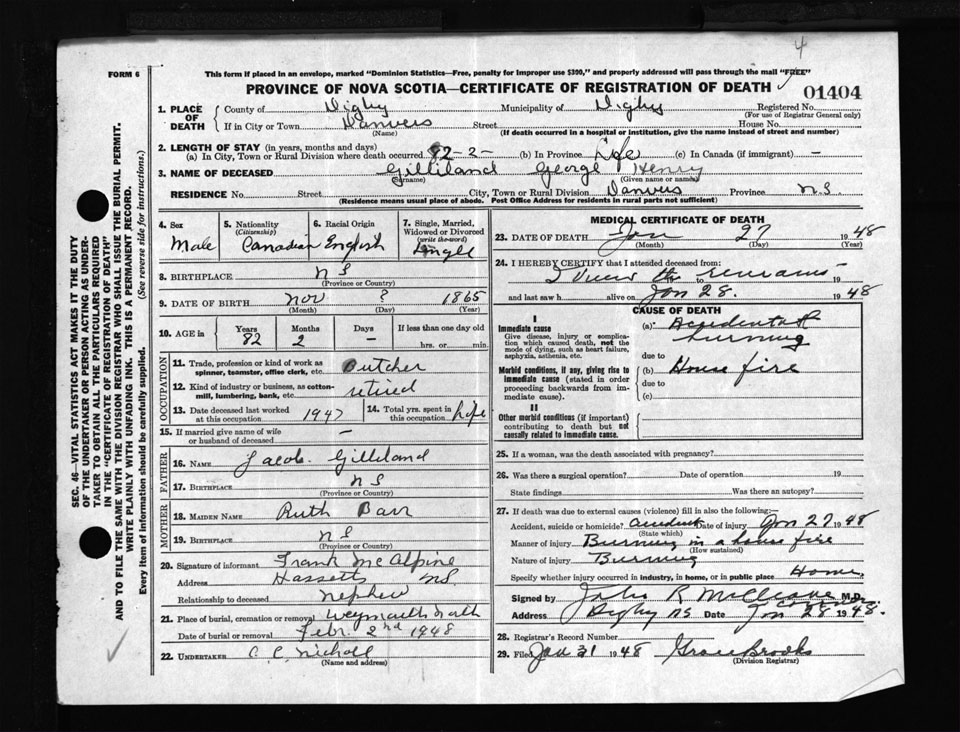 4
FORM 6
This form if placed in an envelope, marked "Dominion Statistics—Free, penalty for improper use $300," and properly addressed will pass through the mail "FREE"
PROVINCE OF NOVA SCOTIA—CERTIFICATE OF REGISTRATION OF DEATH
01404
1. PLACE OF DEATH
County of Digby Municipality of Digby Registered No.
(For use of Registrar General only)
If in City or Town Danvers Street House No.
(Name) (If death occurred in a hospital or institution, give the name instead of street and number)
2. LENGTH OF STAY (in years, months and days)
(a) In City, Town or Rural Division where death occurred 82-2- (b) In Province Life (c) In Canada (if immigrant) —
3. NAME OF DECEASED Gilliland George Henry
(Surname) (Given name or names)
RESIDENCE No. Street City, Town or Rural Division Danvers Province N.S.
(Residence means usual place of abode. Post Office Address for residents in rural parts not sufficient)
4. Sex Male
5. Nationality (Citizenship) Canadian
6. Racial Origin English
7. Single, Married, Widowed or Divorced (write the word) Single
8. BIRTHPLACE N S
(Province or Country)
9. DATE OF BIRTH Nov ? 1865
(Month) (Day) (Year)
10. AGE in Years 82 Months 2 Days — If less than one day old hrs. or min.
OCCUPATION
11. Trade, profession or kind of work as spinner, teamster, office clerk, etc.
12. Kind of industry or business, as cotton-mill, lumbering, bank, etc. retired
13. Date deceased last worked at this occupation 1947
14. Total yrs. spent in this occupation life
15. If married give name of wife or husband of deceased —
FATHER
16. NAME Jacob Gilliland
17. BIRTHPLACE N S
(Province or Country)
MOTHER
18. MAIDEN NAME Ruth Barr
19. BIRTHPLACE N S
(Province or Country)
20. Signature of informant Frank McAlpine
Address Hassetts NS
Relationship to deceased nephew
21. Place of burial, cremation or removal Weymouth North
Date of burial or removal Febr. 2nd 1948
22. UNDERTAKER Nicholl
(Name and address)
MEDICAL CERTIFICATE OF DEATH
23. DATE OF DEATH Jan 27 1948
(Month) (Day) (Year)
24. I HEREBY CERTIFY that I attended deceased from:
I view the remains to 19
and last saw h alive on Jan 28. 1948
CAUSE OF DEATH
I
Immediate cause
Give disease, injury or complication which caused death, not the mode of dying, such as heart failure, asphyxia, asthenia, etc.
(a) Accidental burning
due to
Morbid conditions, if any, giving rise to immediate cause (stated in order proceeding backwards from immediate cause).
(b) House fire
due to
(c)
II
Other morbid conditions (if important) contributing to death but not causally related to immediate cause.
25. If a woman, was the death associated with pregnancy?
26. Was there a surgical operation? Date of operation 19
State findings Was there an autopsy?
27. If death was due to external causes (violence) fill in also the following:
Accident, suicide or homicide? accident Date of injury Jan 27 1948
(State which)
Manner of injury Burning in a house fire
(How sustained)
Nature of injury Burning
Specify whether injury occurred in industry, in home, or in public place Home
Signed by John R McCleave M.D. Coroner
Address Digby NS Date Jan 28 1948.
28. Registrar's Record Number
29. Filed Jan 31 1948 Grace Brooks
(Division Registrar)
SEC. 46—VITAL STATISTICS ACT MAKES IT THE DUTY
OF THE UNDERTAKER OR PERSON ACTING AS UNDER-
TAKER TO OBTAIN ALL THE PARTICULARS REQUIRED
IN THE "CERTIFICATE OF REGISTRATION OF DEATH"
AND TO FILE THE SAME WITH THE DIVISION REGISTRAR WHO SHALL ISSUE THE BURIAL PERMIT.
WRITE PLAINLY WITH UNFADING INK. THIS IS A PERMANENT RECORD.
Every item of information should be carefully supplied. (See reverse side for instructions.)